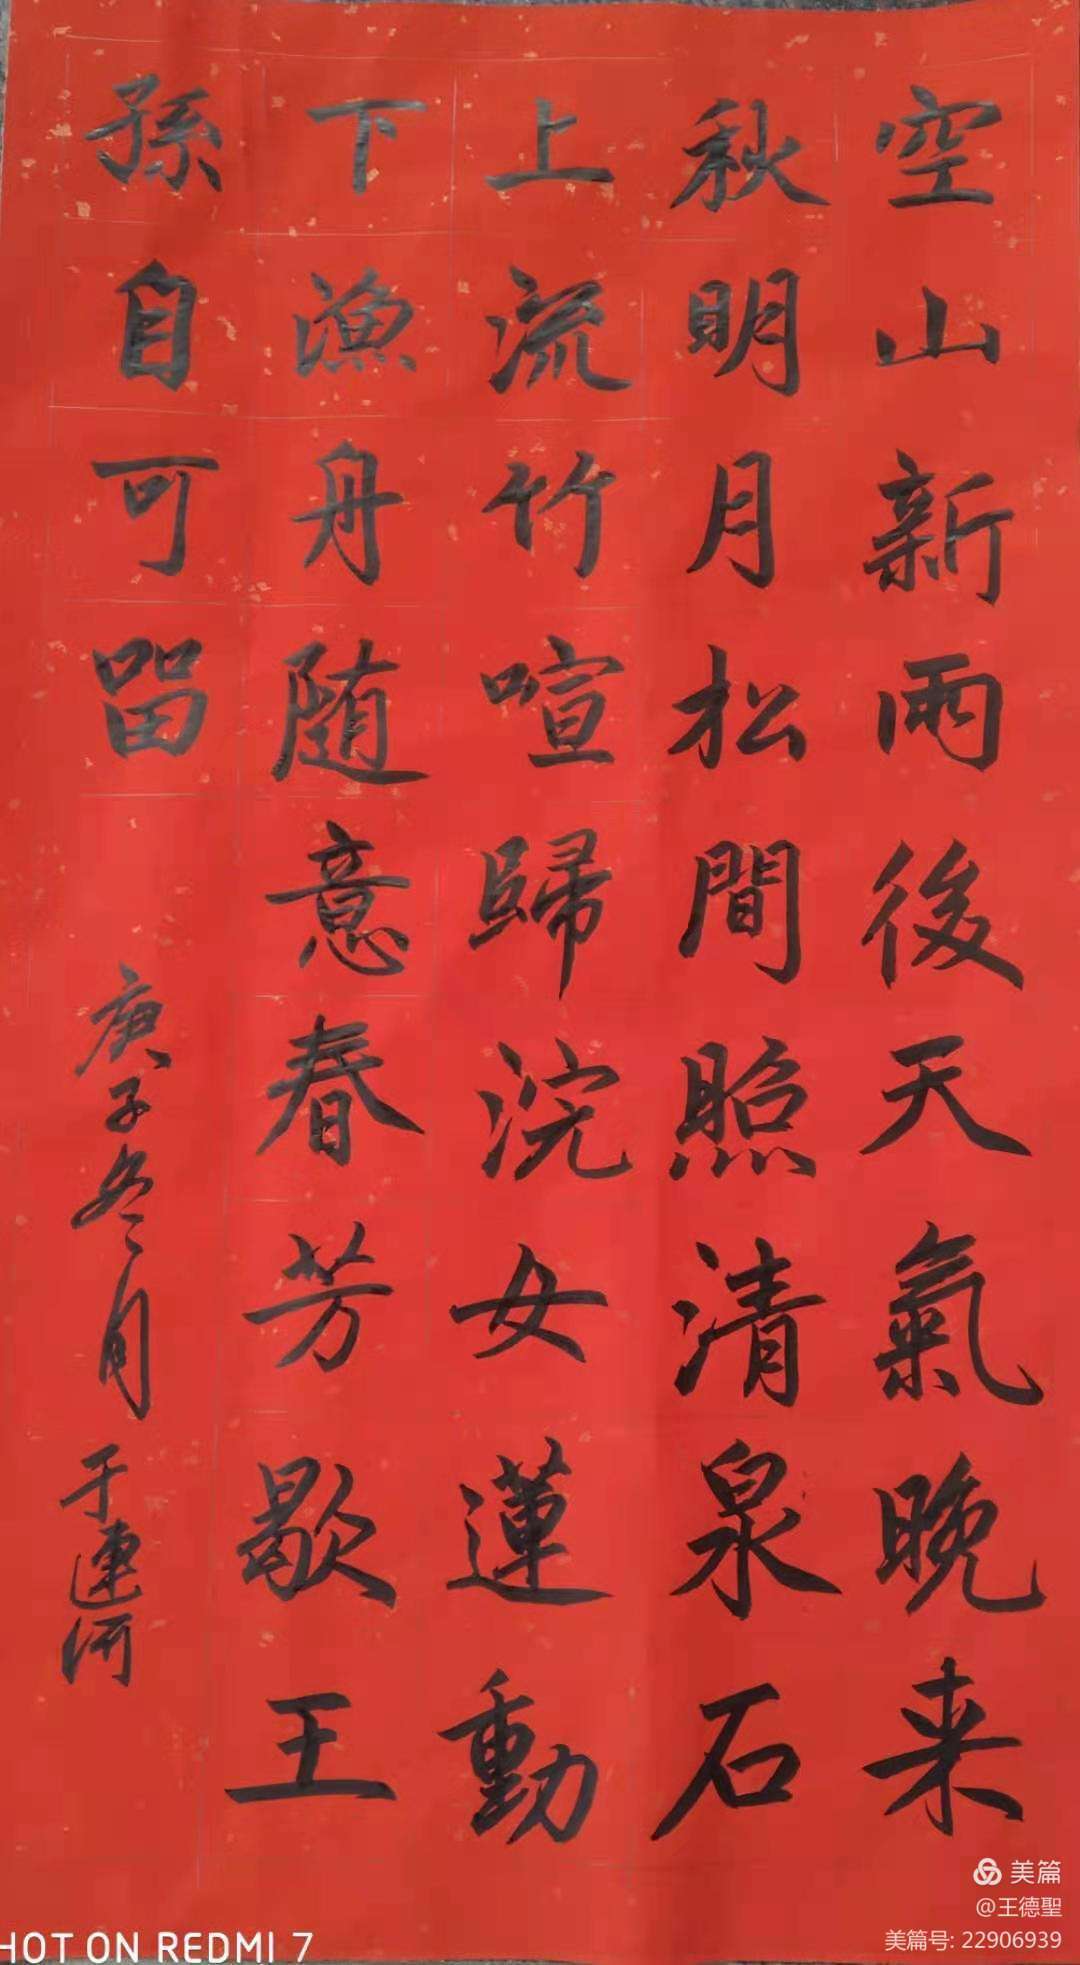 空山新雨後天氣晚来
秋明月松間照清泉石
上流竹喧歸浣女蓮動
下漁舟随意春芳歇王
孫自可留
庚子冬月
于連河
美篇
@王德聖
美篇号: 22906939
HOT ON REDMI 7